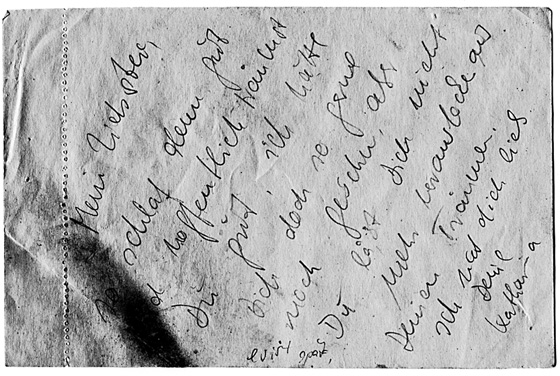 Mein Liebster,
schlaf denn gut
und hoffentlich träumst
Du gut, ich hätte
Dich doch so gerne
noch gesehen, aber
Du läßt Dich nicht
mehr
Deinen Träumen.
Ich hab dich lieb
Deine
Katharina